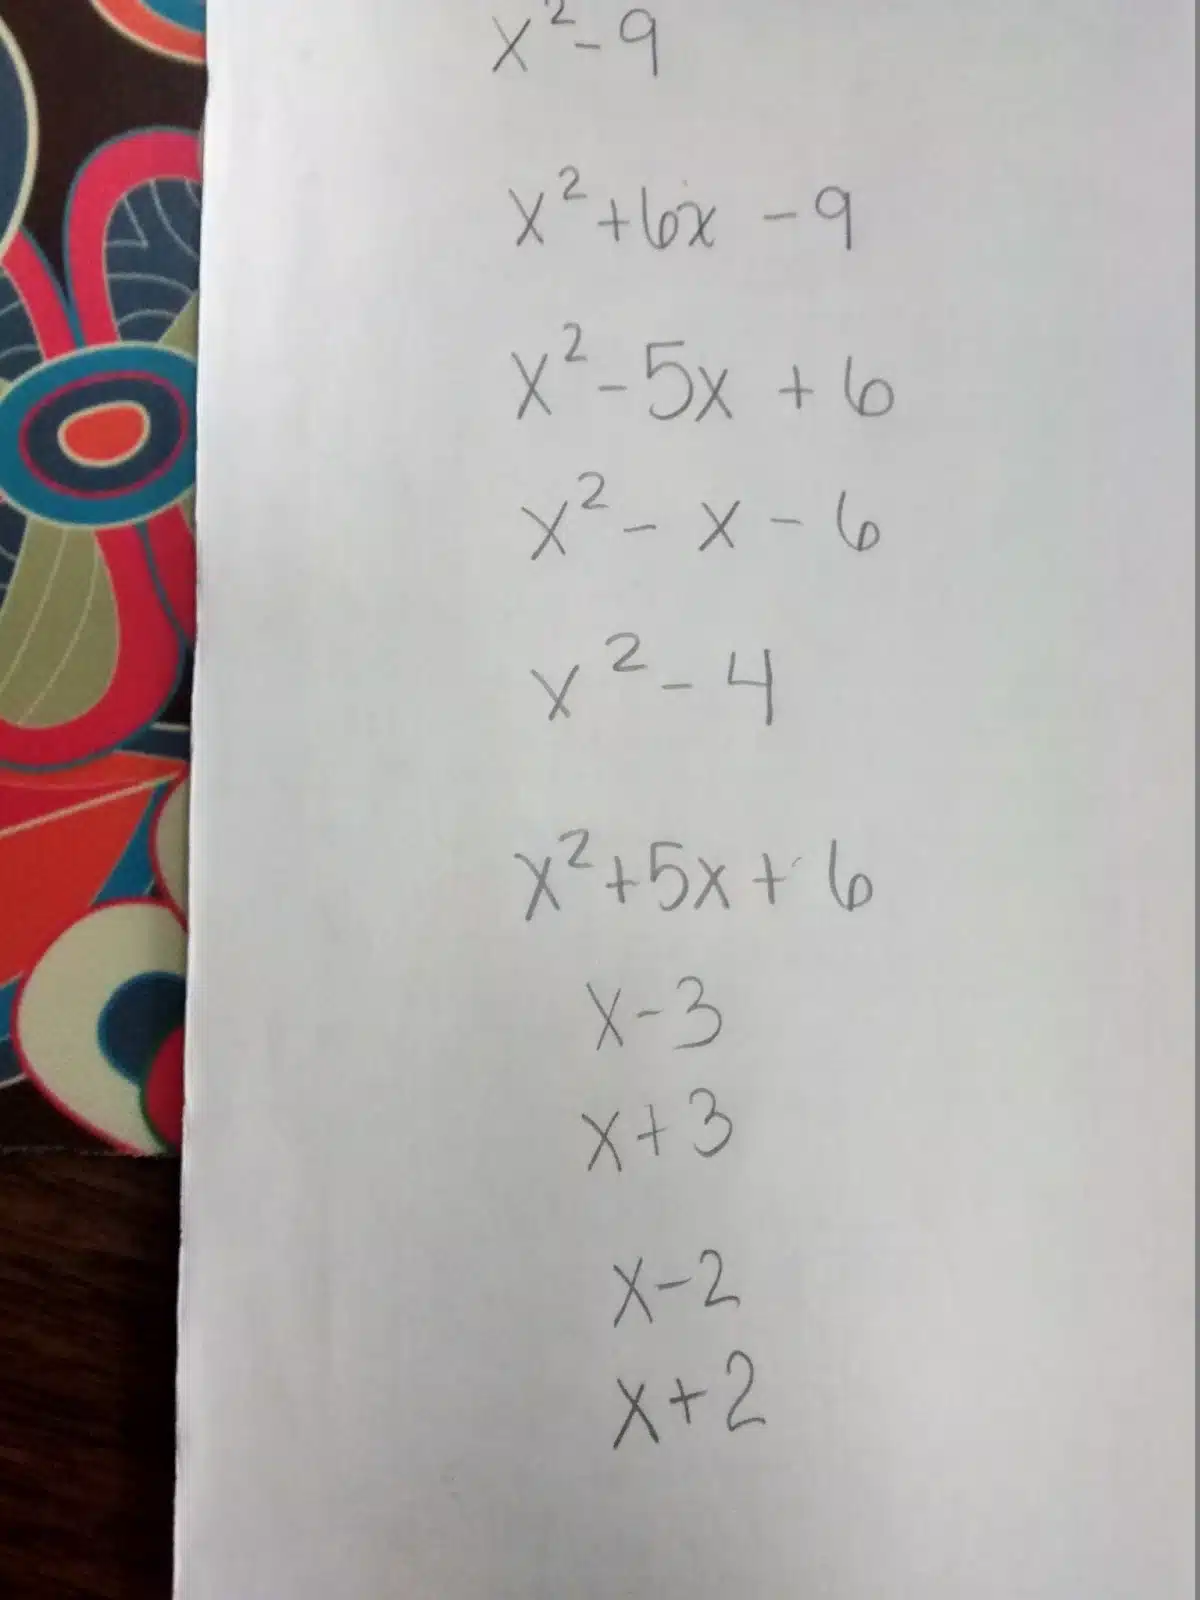 x²-9
x²+6x -9
x²-5x +6
x²- x - 6
x²-4
x²+5x+ 6
x-3
x+3
x-2
x+2